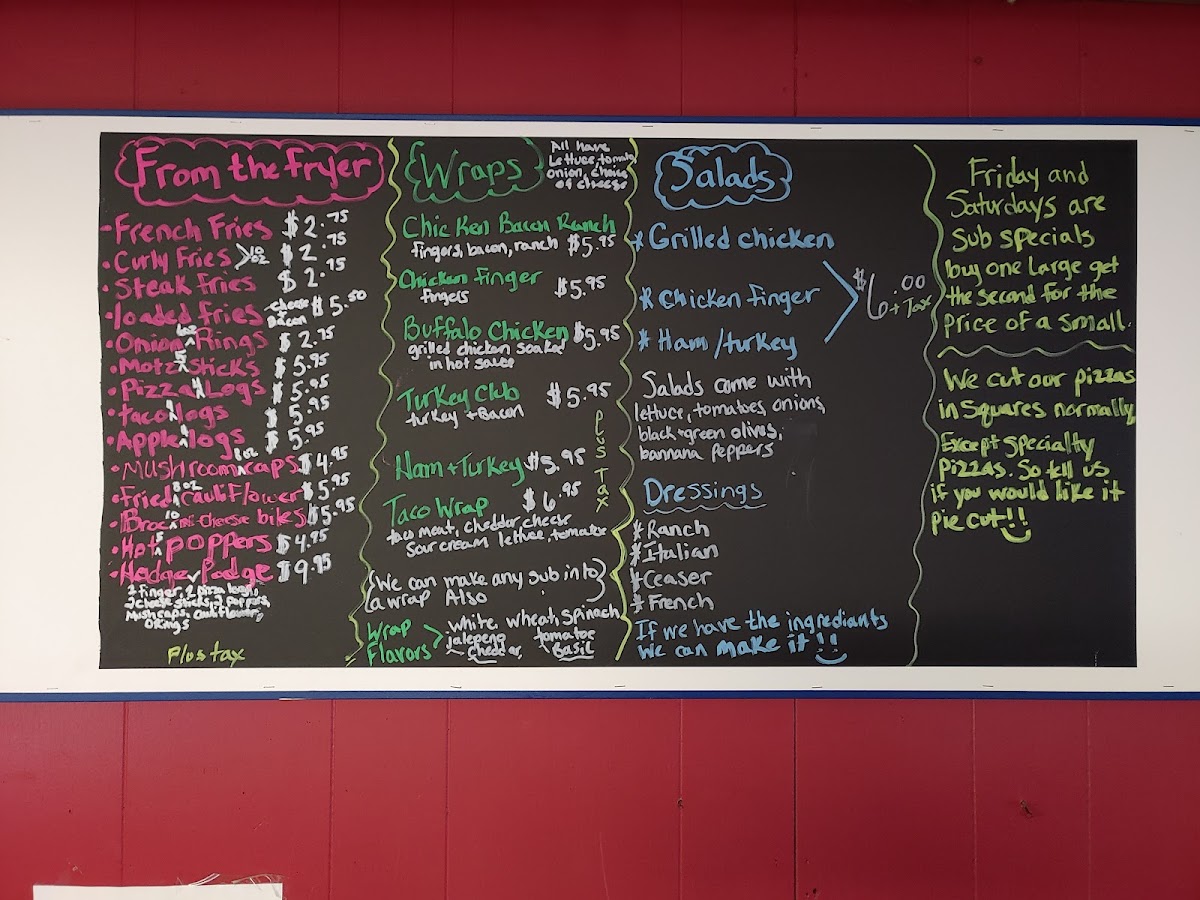 From the fryer
• French Fries $2.75
• Curly Fries >10 oz $2.75
• Steak Fries $2.75
• loaded fries cheese Bacon $5.50
• Onion Rings $2.75
• Motz sticks 5 $5.95
• Pizza Logs 4 $5.95
• taco logs $5.95
• Apple logs $5.95
• Mushroom caps $4.95
• Fried cauliflower 8oz $5.95
• Broc n cheese bites 10 $5.95
• Hot poppers 5 $4.95
• Hodge Podge $9.95
2 finger, 2 pizza logs,
2 cheese sticks, 2 poppers,
Mushroom, cauliflower,
O Rings
Plus tax
Wraps
All have
lettuce, tomato
onion, choice
of cheese
Chicken Bacon Ranch
fingers, bacon, ranch $5.95
Chicken Finger $5.95
fingers
Buffalo Chicken $5.95
grilled chicken soaked
in hot sauce
Turkey Club $5.95
turkey + Bacon
Ham + Turkey $5.95
Taco Wrap $6.95
taco meat, cheddar cheese
sour cream lettuce, tomatoe
Plus Tax
(We can make any sub into)
(a wrap Also)
Wrap Flavors > white, wheat, spinach
jalepeno cheddar, tomatoe Basil
Salads
* Grilled chicken
* Chicken finger
* Ham/turkey
$6.00 + Tax
Salads come with
lettuce, tomatoes, onions,
black + green olives,
bannana peppers
Dressings
* Ranch
* Italian
* Ceaser
* French
If we have the ingrediants
we can make it!!
Friday and
Saturdays are
Sub specials
buy one Large get
the second for the
price of a small.
We cut our pizzas
in squares normally,
Except specialty
pizzas. So tell us
if you would like it
pie cut!!